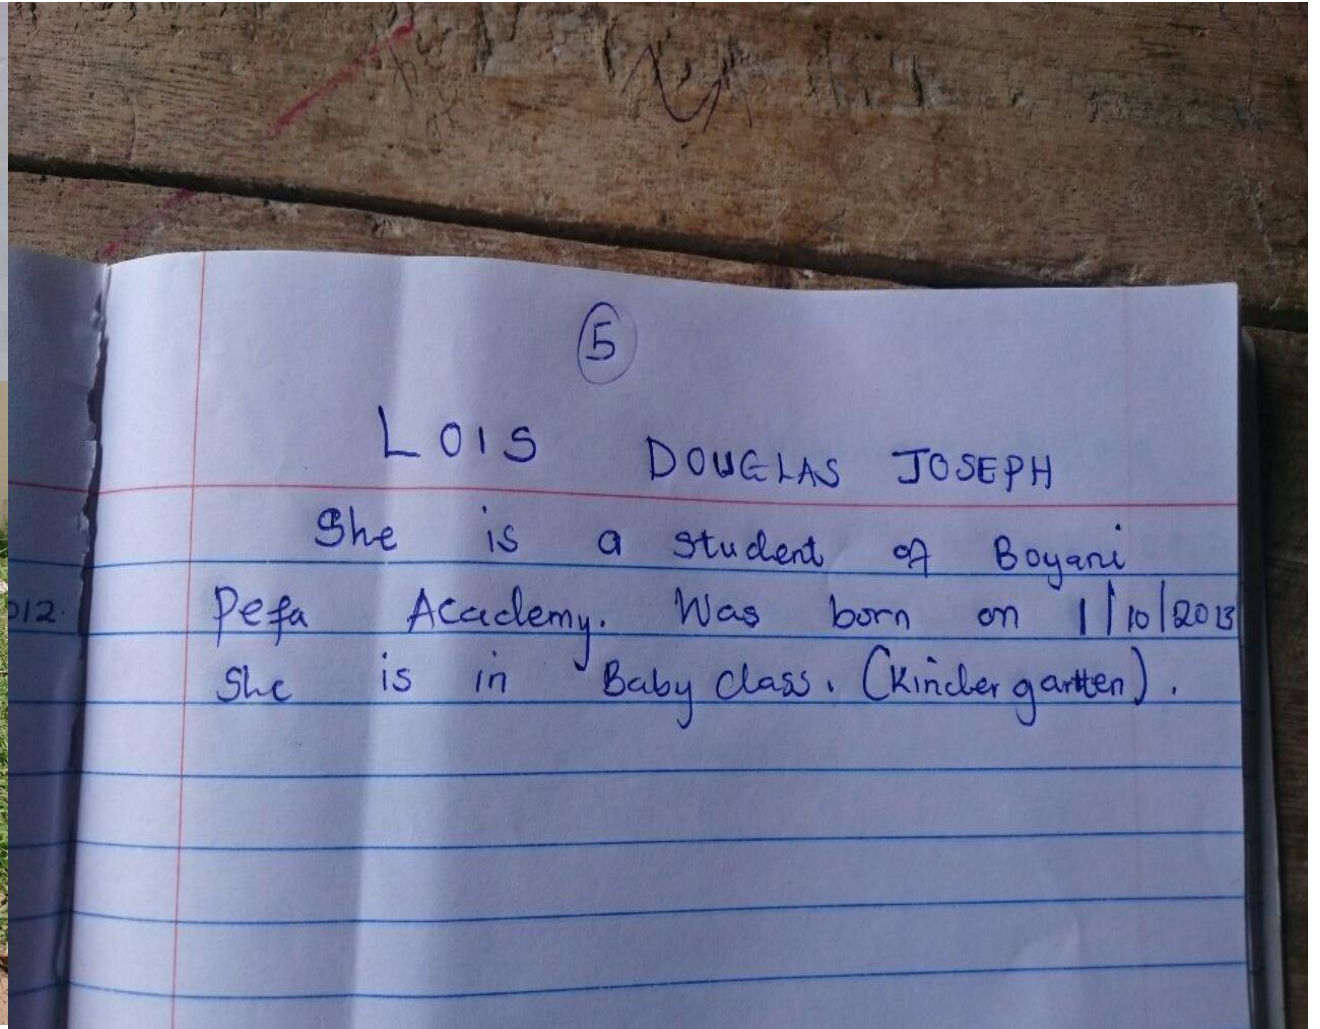 5
LOIS DOUGLAS JOSEPH
She is a student of Boyani
Pefa Academy. Was born on 1/10/2013
She is in Baby class. (Kindergartten).
012.